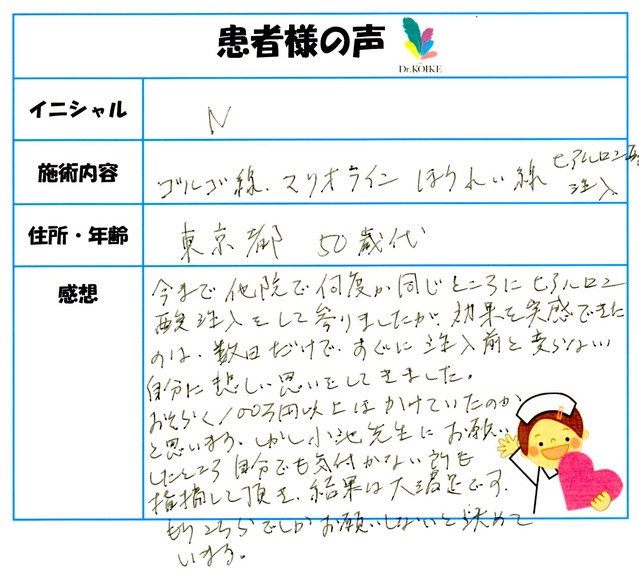 患者様の声
Dr.KOIKE
イニシャル
N
施術内容
ゴルゴ線、マリオライン ほうれい線 ヒアルロン酸
注入
住所・年齢
東京都 50歳代
感想
今まで他院で何度か同じところにヒアルロン
酸注入をして参りましたが、効果を実感できた
のは、数日だけで、すぐに注入前と変らない
自分に悲しい思いをしてきました。
おそらく100万円以上はかけていたのか
と思います。しかし小池先生にお願い
したところ自分でも気付かない所も
指摘して頂き、結果は大満足です。
もうこちらでしかお願いしないと決めて
います。